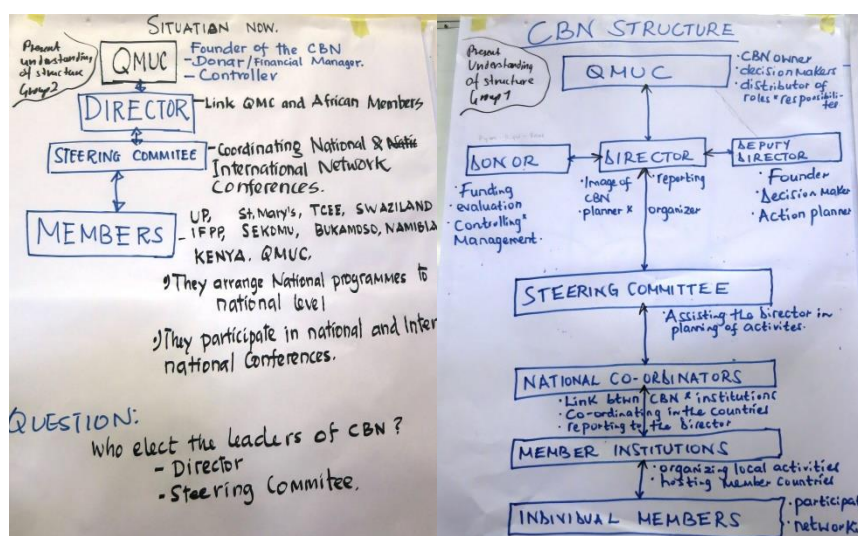 SITUATION NOW.
Present
understanding
of structure
Group 2
QMUC
Founder of the CBN
-Donar/Financial Manager.
- Controller
DIRECTOR
-Link QMC and African Members
STEERING COMMITEE
-Coordinating National &
International Network
Conferences.
MEMBERS
- UP, St, Mary's, TCEE, SWAZILAND
IFPP, SEKOMU, BUKAMOSO, NAMIBIA
KENYA, QMUC,
They arrange National programmes to
national level
They participate in national and Inter
national Conferences.
QUESTION:
Who elect the leaders of CBN?
- Director
- Steering Commitee.
CBN STRUCTURE
Present
Understanding
of structure
Group 1
QMUC
· CBN owner
· decision makers
· distributor of
roles & responsibilities
DONOR
DIRECTOR
DEPUTY
DIRECTOR
· Funding
· evaluation
· Controlling &
Management.
· Image of
CBN
· planner &
· reporting
organizer
· Founder
· Decision Maker
· Action planner
STEERING COMMITTEE
· Assisting the Director in
planning of activites.
NATIONAL CO-ORDINATORS
· Link btwn CBN & institutions
· Co-ordinating in the countries
· reporting to the director
MEMBER INSTITUTIONS
· organizing local activities
· hosting member countries
INDIVIDUAL MEMBERS
· participat
· network